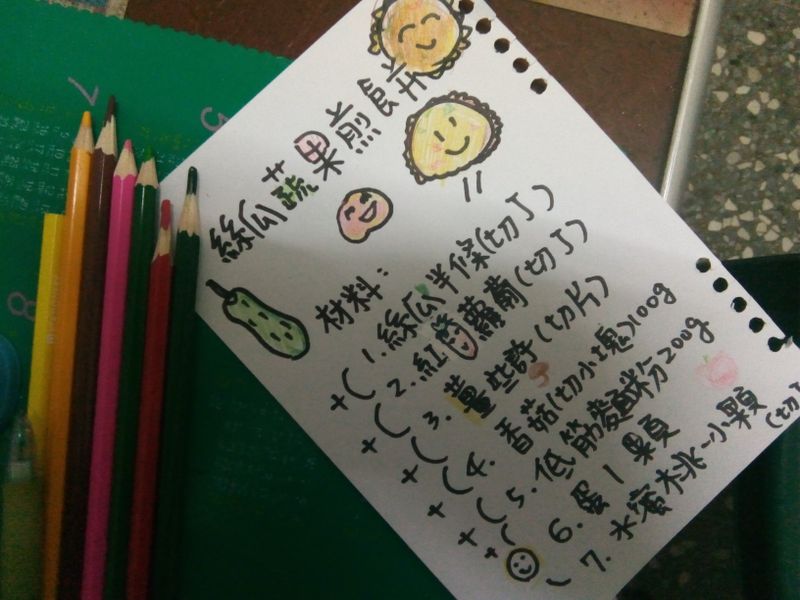 絲瓜蔬果煎食并
材料：
1. 絲瓜半條(切丁)
2. 紅蘿蔔(切丁)
3. 薑些許(切片)
4. 香菇(切小塊)100g
5. 低筋麵粉200g
6. 蛋1顆
7. 水蜜桃一小顆(切丁